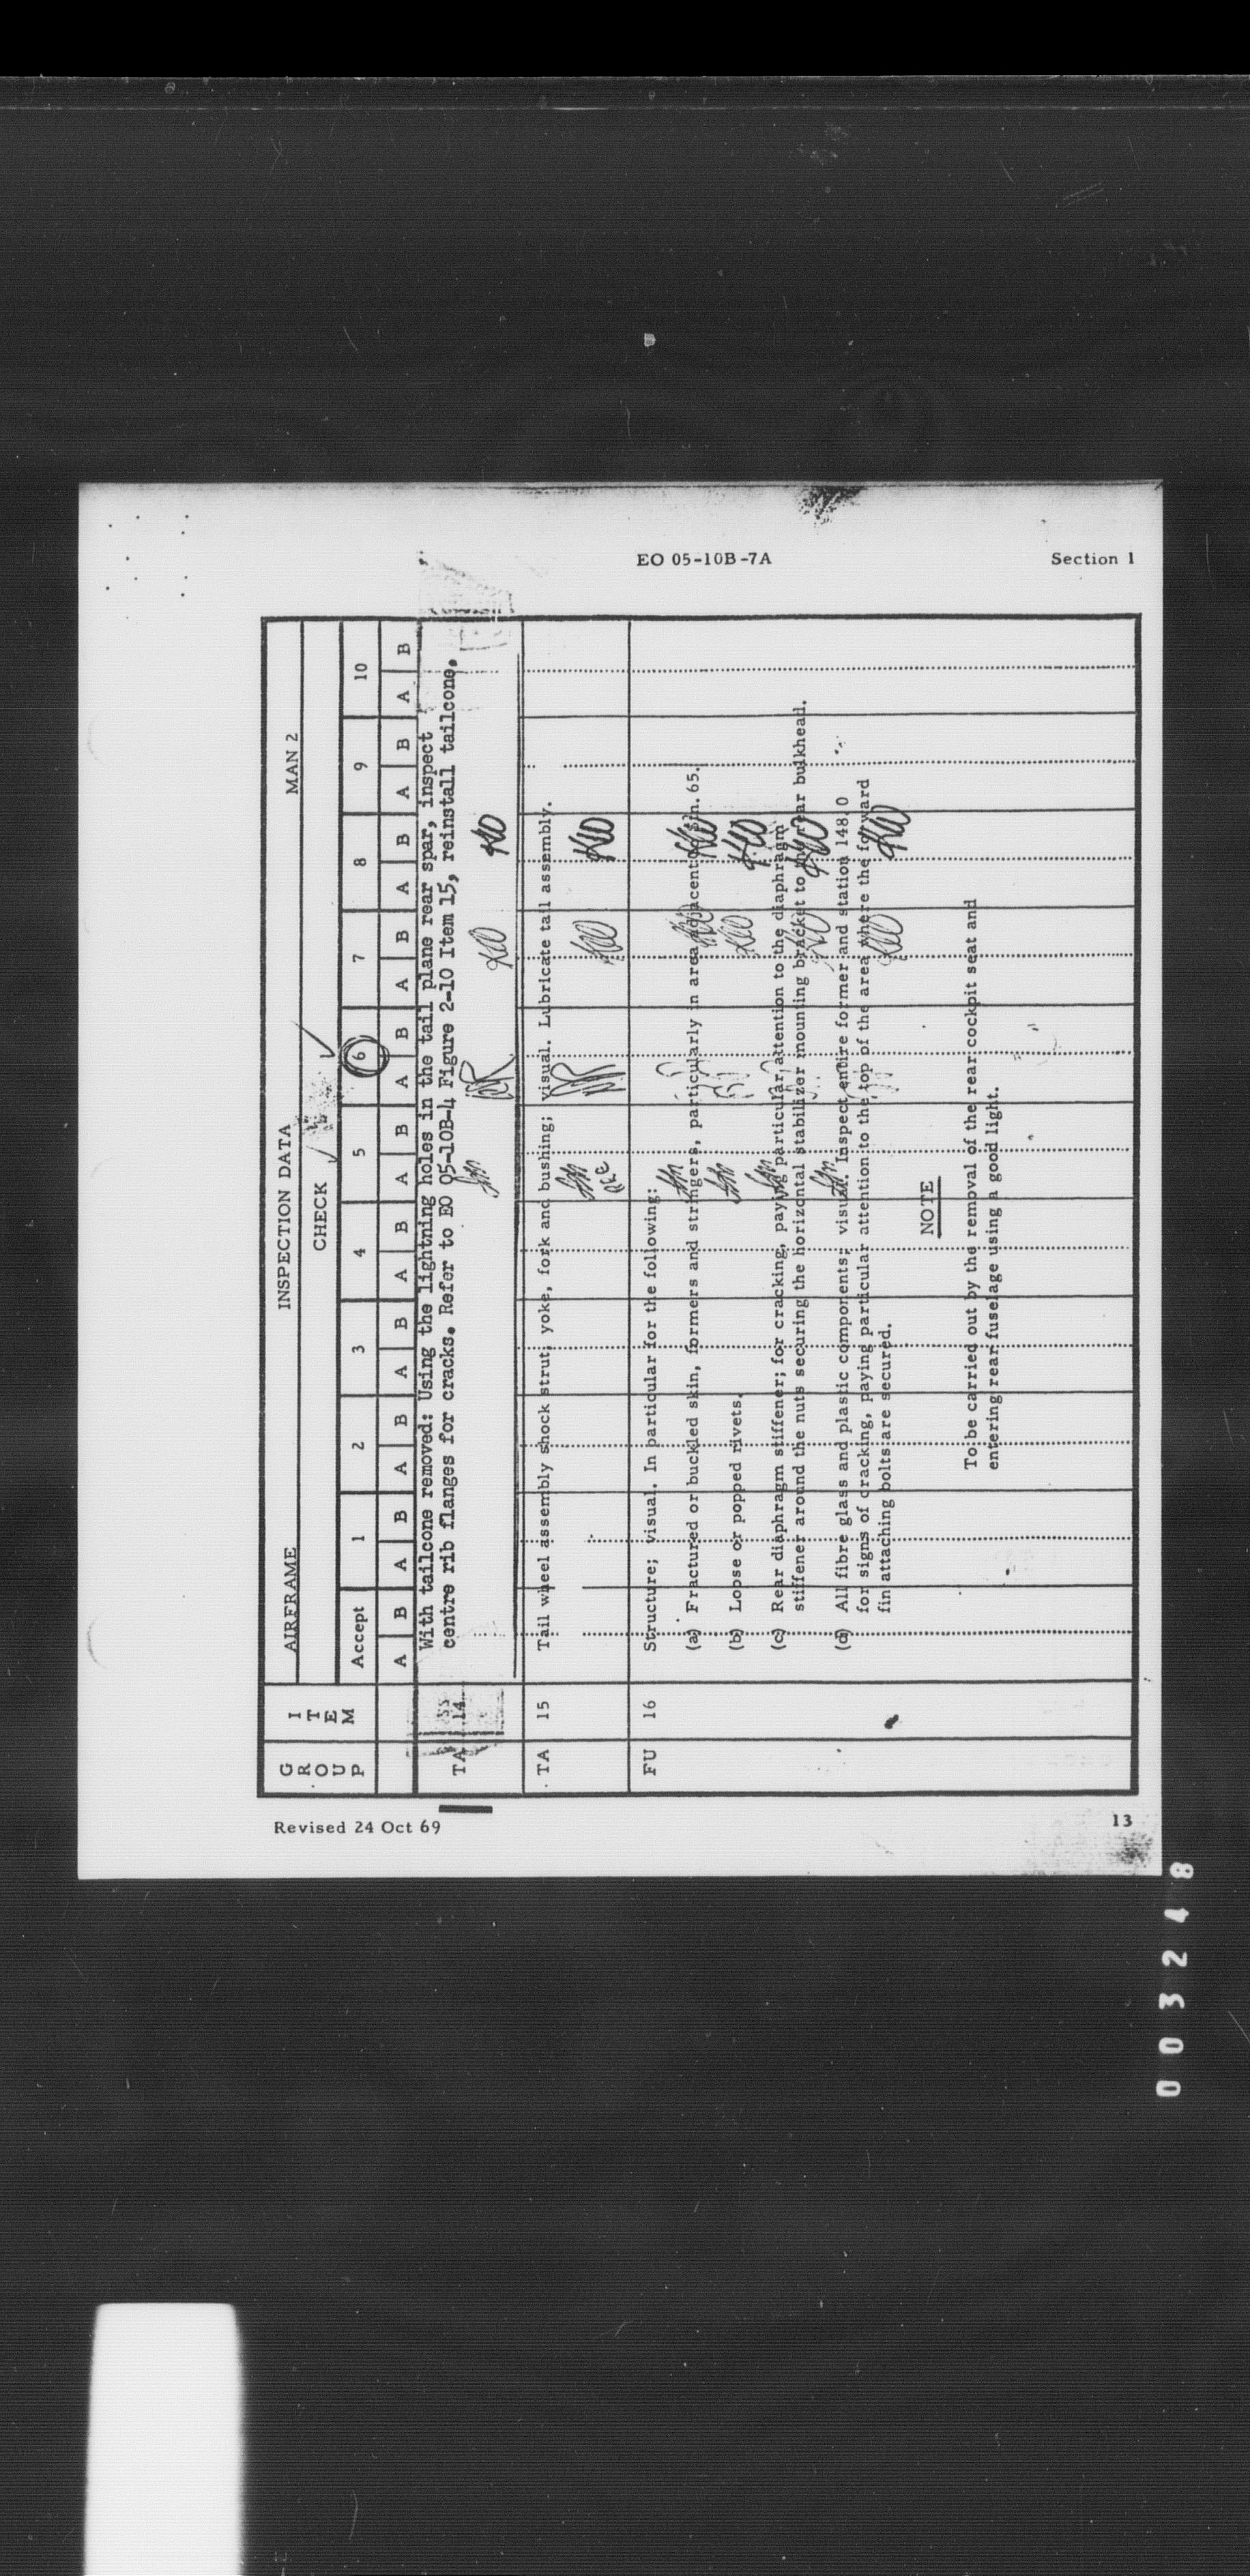 EO 05-10B-7A
Section 1
GROUP
ITEM
AIRFRAME INSPECTION DATA MAN 2
CHECK
Accept 1 2 3 4 5 6 7 8 9 10
A B A B A B A B A B A B A B A B A B A B A B
TA 14 With tailcone removed: Using the lightning holes in the tail plane rear spar, inspect
centre rib flanges for cracks. Refer to EO 05-10B-4 Figure 2-10 Item 15, reinstall tailcone.
TA 15 Tail wheel assembly shock strut; yoke, fork and bushing; visual. Lubricate tail assembly.
FU 16 Structure; visual. In particular for the following:
(a) Fractured or buckled skin, formers and stringers, particularly in area adjacent stn. 65.
(b) Loose or popped rivets.
(c) Rear diaphragm stiffener; for cracking, paying particular attention to the diaphragm
stiffener around the nuts securing the horizontal stabilizer mounting bracket to the rear bulkhead.
(d) All fibre glass and plastic components; visual. Inspect entire former and station 148.0
for signs of cracking, paying particular attention to the top of the area where the forward
fin attaching bolts are secured.
NOTE
To be carried out by the removal of the rear cockpit seat and
entering rear fuselage using a good light.
Revised 24 Oct 69
13
003248